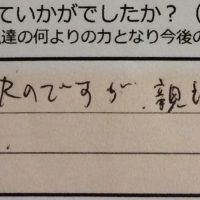 ていかがでしたか？（
達の何よりの力となり今後の
のですが、親